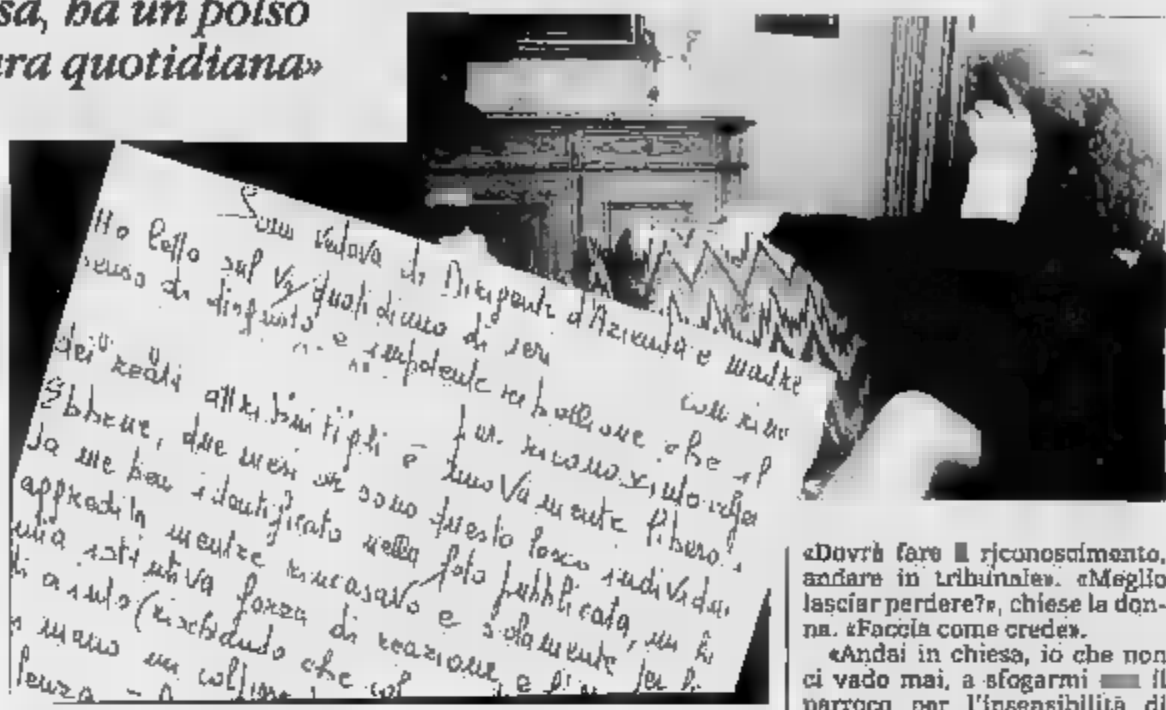 sa, ha un polso
ura quotidiana»
Sono vedova di Dirigente d'Azienda e madre
Ho letto sul Vs/ quotidiano di ieri con vivo
senso di disgusto e impotente ribellione che il
dei reati attribuitigli è nuovamente libero.
Ebbene, due mesi or sono questo losco individuo
da me ben identificato nella foto pubblicata, mi ha
aggredita mentre rincasavo e solamente per la
mia istintiva forza di reazione e
di aiuto (rischiando che col
in mano un
«Dovrà fare il riconoscimento,
andare in tribunale». «Meglio
lasciar perdere?», chiese la don-
na. «Faccia come crede».
«Andai in chiesa, io che non
ci vado mai, a sfogarmi il
parroco per l'insensibilità di